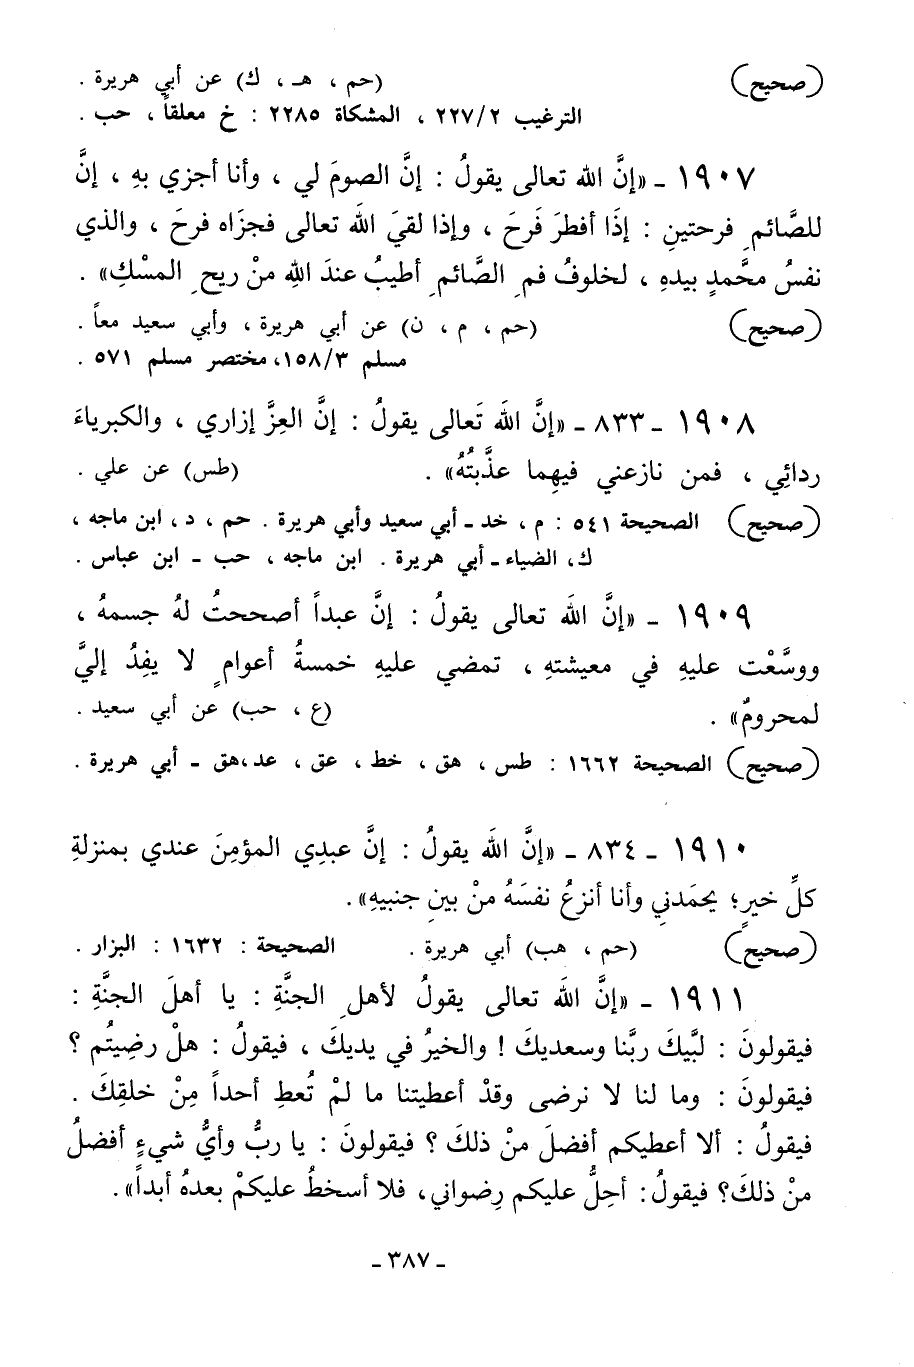 (صحيح) (حم ، هـ ، ك) عن أبي هريرة .
الترغيب ٢٢٧/٢ ، المشكاة ٢٢٨٥ : خ معلقاً ، حب .
١٩٠٧ ـ «إنَّ الله تعالى يقولُ : إنَّ الصومَ لي ، وأنا أجزي بهِ ، إنَّ
للصَّائمِ فرحتينِ : إذَا أفطرَ فَرحَ ، وإذا لقيَ اللهَ تعالى فجزَاه فرحَ ، والذي
نفسُ محمَّدٍ بيدهِ ، لخلوفُ فمِ الصَّائمِ أطيبُ عندَ اللهِ منْ ريحِ المسْكِ» .
(صحيح) (حم ، م ، ن) عن أبي هريرة ، وأبي سعيد معاً .
مسلم ١٥٨/٣، مختصر مسلم ٥٧١ .
١٩٠٨ ـ ٨٣٣ ـ «إنَّ اللهَ تَعالى يقولُ : إنَّ العِزَّ إزاري ، والكبرياءَ
ردائِي ، فمن نازعني فيهِما عذَّبتُهُ» . (طس) عن علي .
(صحيح) الصحيحة ٥٤١ : م ، خد ـ أبي سعيد وأبي هريرة . حم ، د ، ابن ماجه ،
ك، الضياء ـ أبي هريرة . ابن ماجه ، حب ـ ابن عباس .
١٩٠٩ ـ «إنَّ اللهَ تعالى يقولُ : إنَّ عبداً أصححتُ لهُ جسمهُ ،
ووسَّعْت عليهِ في معيشتهِ ، تمضي عليهِ خمسةُ أعوامٍ لا يفِدُ إليَّ
لمحرومٌ» . (ع ، حب) عن أبي سعيد .
(صحيح) الصحيحة ١٦٦٢ : طس ، هق ، خط ، عق ، عد،هق ـ أبي هريرة .
١٩١٠ ـ ٨٣٤ ـ «إنَّ اللهَ يقولُ : إنَّ عبدِي المؤمِنَ عندي بمنزلةِ
كلِّ خيرٍ؛ يحمَدنِي وأنا أنزعُ نفسَهُ منْ بينِ جنبيهِ» .
(صحيح) (حم ، هب) أبي هريرة . الصحيحة : ١٦٣٢ : البزار .
١٩١١ ـ «إنَّ اللهَ تعالى يقولُ لأهلِ الجنَّةِ : يا أهلَ الجنَّةِ :
فيقولونَ : لبَّيكَ ربَّنا وسعديكَ ! والخيرُ في يديكَ ، فيقولُ : هلْ رضِيتُم ؟
فيقولونَ : وما لنا لا نرضى وقدْ أعطيتنا ما لمْ تُعطِ أحداً مِنْ خلقِكَ .
فيقولُ : ألا أعطيكم أفضلَ منْ ذلكَ ؟ فيقولونَ : يا ربُّ وأيُّ شيءٍ أفضلُ
منْ ذلكَ؟ فيقولُ: أحِلُّ عليكم رِضواني، فلا أسخطُ عليكمْ بعدهُ أبداً» .
ـ ٣٨٧ ـ